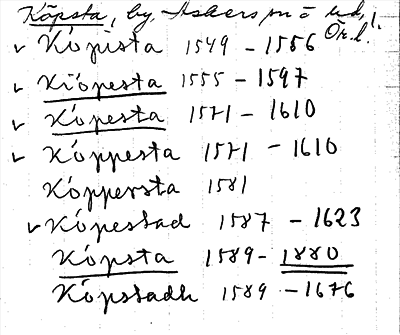 Köpsta, by, Askers sn ö ud, Ör. l.
✓ Köpista 1549 - 1556
✓ Kiöpesta 1555 - 1597
✓ Köpesta 1571 - 1610
✓ Köppesta 1571 - 1610
Köppersta 1581
✓ Köpestad 1587 - 1623
Köpsta 1589 - 1880
Köpstadh 1589 - 1676